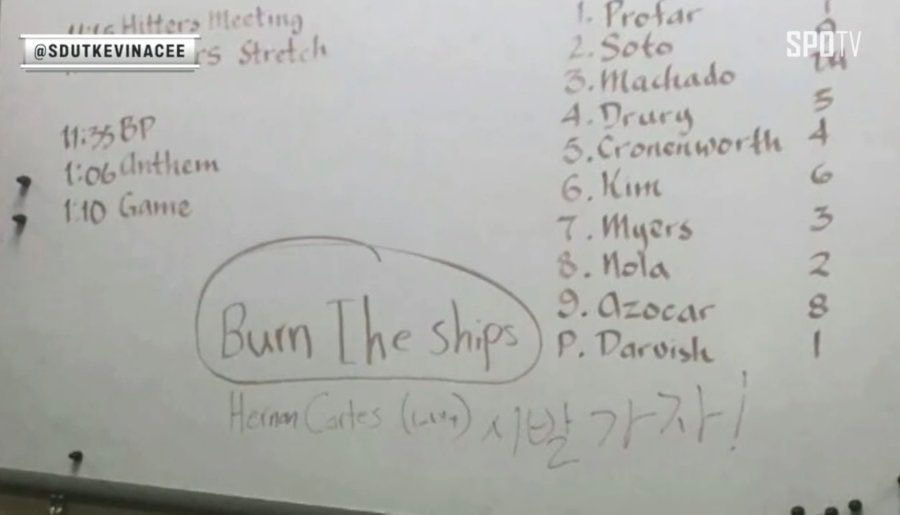 11:15 Hitters Meeting
@SDUTKEVINACEE
Stretch
11:35 BP
1:06 Anthem
1:10 Game
1. Profar
2. Soto
3. Machado
4. Drury 5
5. Cronenworth 4
6. Kim 6
7. Myers 3
8. Nola 2
9. Azocar 8
P. Darvish 1
SPOTV
Burn The ships
Hernan Cortes
시발 가자!